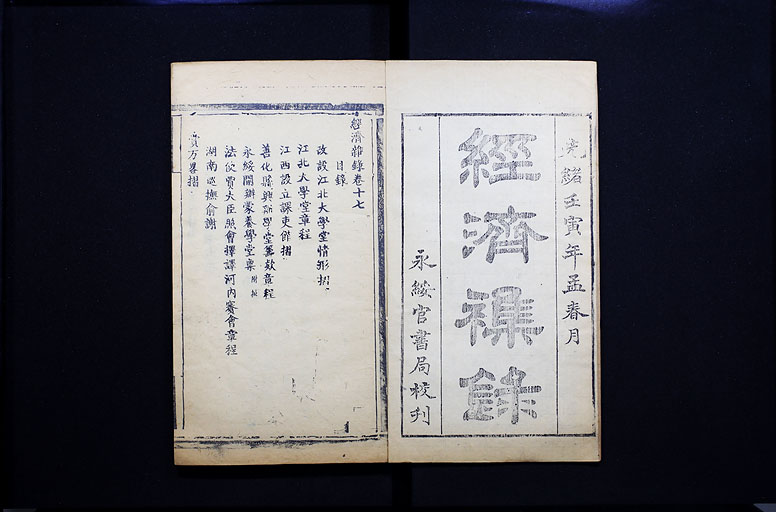 光緒壬寅年孟春月
經濟襍錄
永綏官書局校刋
經濟襍錄卷十七
目錄
改設江北大學堂情形摺
江北大學堂章程
江西設立課吏館摺
善化縣興斯學堂籌欵章程
永綏開辦蒙養學堂稟 附摺
法欽賈大臣照會擇譯河内賽會章程
湖南巡撫俞謝
賞方畧摺